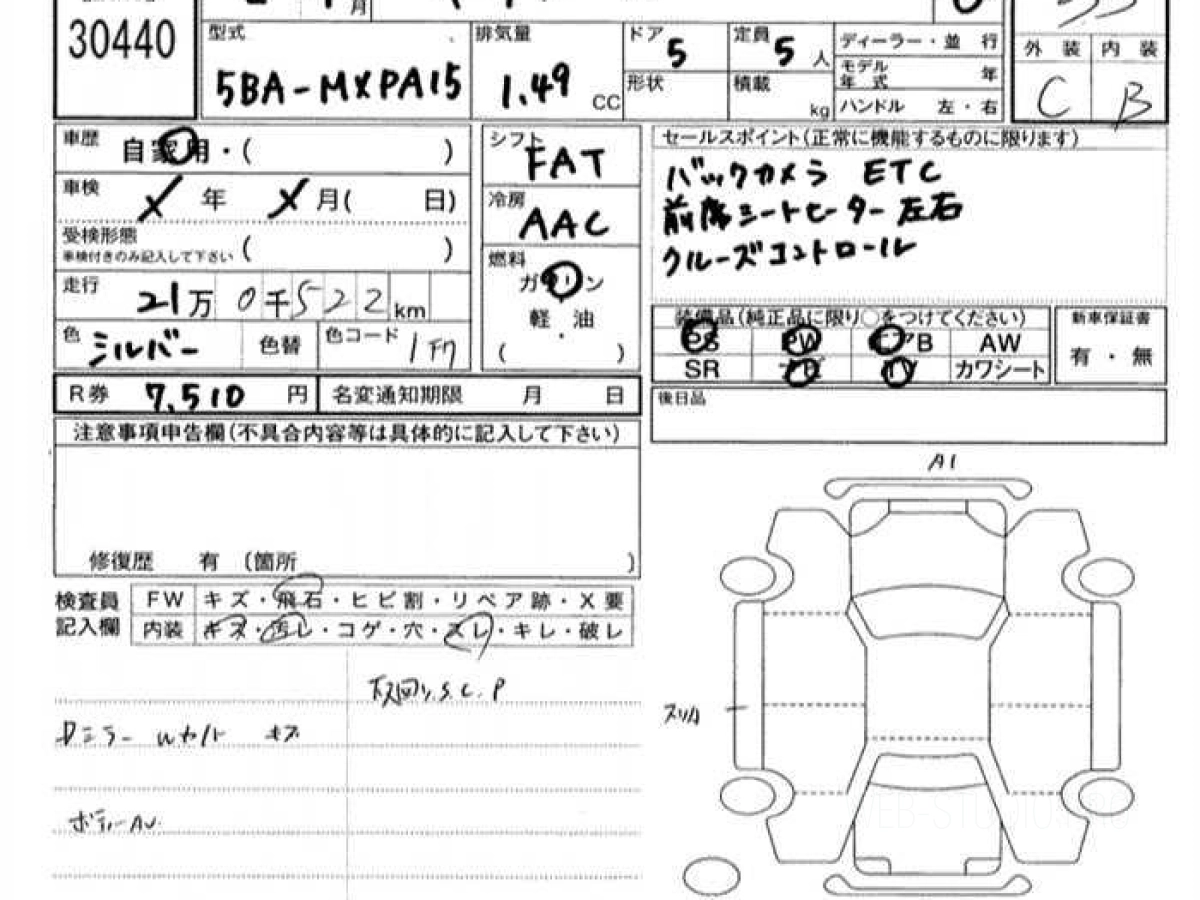 30440
月
型式
排気量
ドア
定員
ディーラー・並 行
5BA-MXPA15
1.49 CC
5
5 人
モデル年式 年
形状
積載 kg
ハンドル 左・右
外 装 内 装
C B
車歴 自家用・( )
車検 X 年 X 月( 日)
受検形態
車検付きのみ記入して下さい ( )
走行 21万 0千522 km
色 シルバー 色替 色コード 1F7
シフト FAT
冷房 AAC
燃料
ガソリン
軽 油
( )
セールスポイント(正常に機能するものに限ります)
バックカメラ ETC
前席シートヒーター左右
クルーズコントロール
装備品(純正品に限り○をつけてください)
PS PW エアB AW
SR ナビ TV カワシート
新車保証書
有・無
R券 7,510 円 名変通知期限 月 日
後日品
注意事項申告欄(不具合内容等は具体的に記入して下さい)
修復歴 有 (箇所 )
検査員
記入欄
FW キズ・飛石・ヒビ割・リペア跡・X要
内装 キズ・汚レ・コゲ・穴・スレ・キレ・破レ
S.C.P
Dミラー キズ
ボデーAU
A1
スリキ